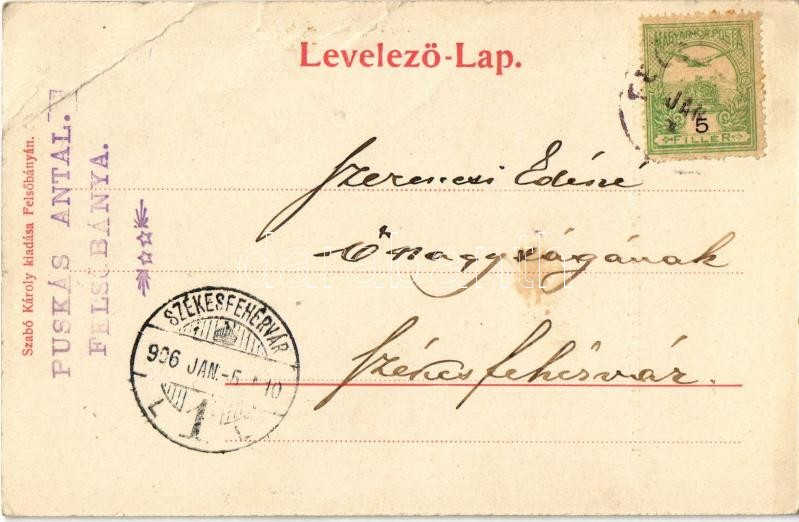 Levelező-Lap.
MAGYAR KIR. POSTA
JAN
5
FILLÉR
Szerencsi Edéné
Őnagyságának
Székesfehérvár.
Szabó Károly kiadása Felsőbányán.
PUSKÁS ANTAL.
FELSŐBÁNYA.
SZÉKESFEHÉRVÁR
906 JAN.-5
1
darabanth